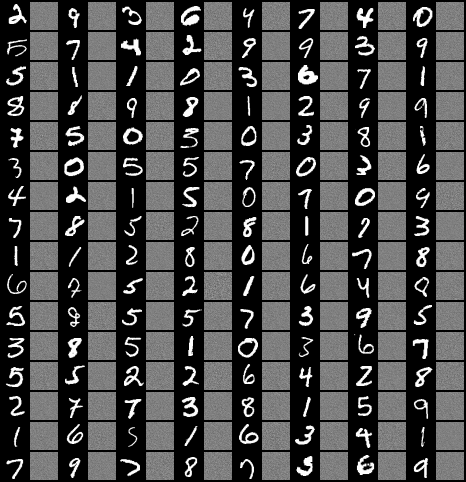 2 9 3 6 4 7 4 0
5 7 4 2 9 9 3 9
5 1 1 0 3 6 7 1
8 8 9 8 1 2 9 9
7 5 0 3 0 3 8 1
3 0 5 5 7 0 3 6
4 2 1 5 0 7 0 9
7 8 5 2 8 1 7 3
1 1 2 8 0 6 7 8
6 7 5 2 1 6 4 8
5 8 5 5 7 3 9 5
3 8 5 1 0 3 6 7
5 5 2 2 6 4 2 8
2 7 7 3 8 1 5 9
1 6 5 1 6 3 4 1
7 9 7 8 7 3 6 9